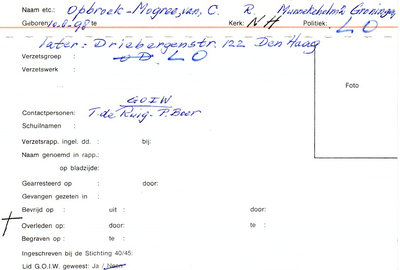 Naam etc.: Opbroek-Mogree, van, C. R. Mussekehelm Groningen
Geboren: 10.6.98 te Kerk: NH Politiek: LO
later: Driebergenstr. 122 Den Haag
Verzetsgroep : OD. LO
Verzetswerk :
GOIW
Contactpersonen: T. de Ruig - P. Boer
Schuilnamen :
Foto
Verzetsrapp. ingel. dd. : bij:
Naam genoemd in rapp.:
op bladzijde:
Gearresteerd op : door:
Gevangen gezeten in :
Bevrijd op : uit : door:
Overleden op: door: te :
Begraven op : te :
Ingeschreven bij de Stichting 40/45:
Lid G.O.I.W. geweest: Ja / Neen